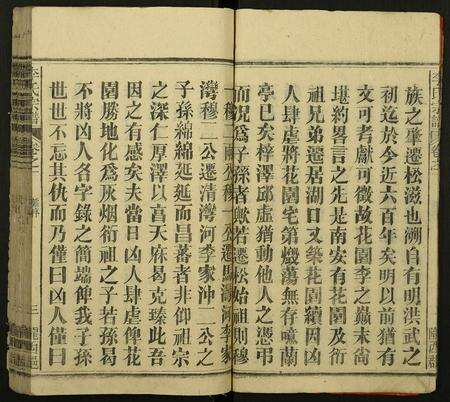 族之肇遷松滋也溯自有明洪武之
初迄於今近六百年矣明以前猶有
文可考獻可徵故花園李之巔末尚
堪約畧言之先是南安有花園及衍
祖兄弟遷居湖口又築花園續因凶
人肆虐將花園宅第燬蕩無存嘛蘭
亭已矣梓澤邱虛猶動他人之憑弔
而況爲子孫者歟若遷松始祖則
公遷馬湖河李家
灣穆二公遷清灣河李家沖二公之
子孫綿綿延延而昌蕃者非仰祖宗
之深仁厚澤以荅天庥曷克臻此吾
因之有感矣夫當日凶人肆虐俾花
園勝地化爲灰烟衍祖之子若孫曷
不將凶人名字錄之簡端俾我子孫
世世不忘其仇而乃僅曰凶人僅曰
李氏宗譜
三